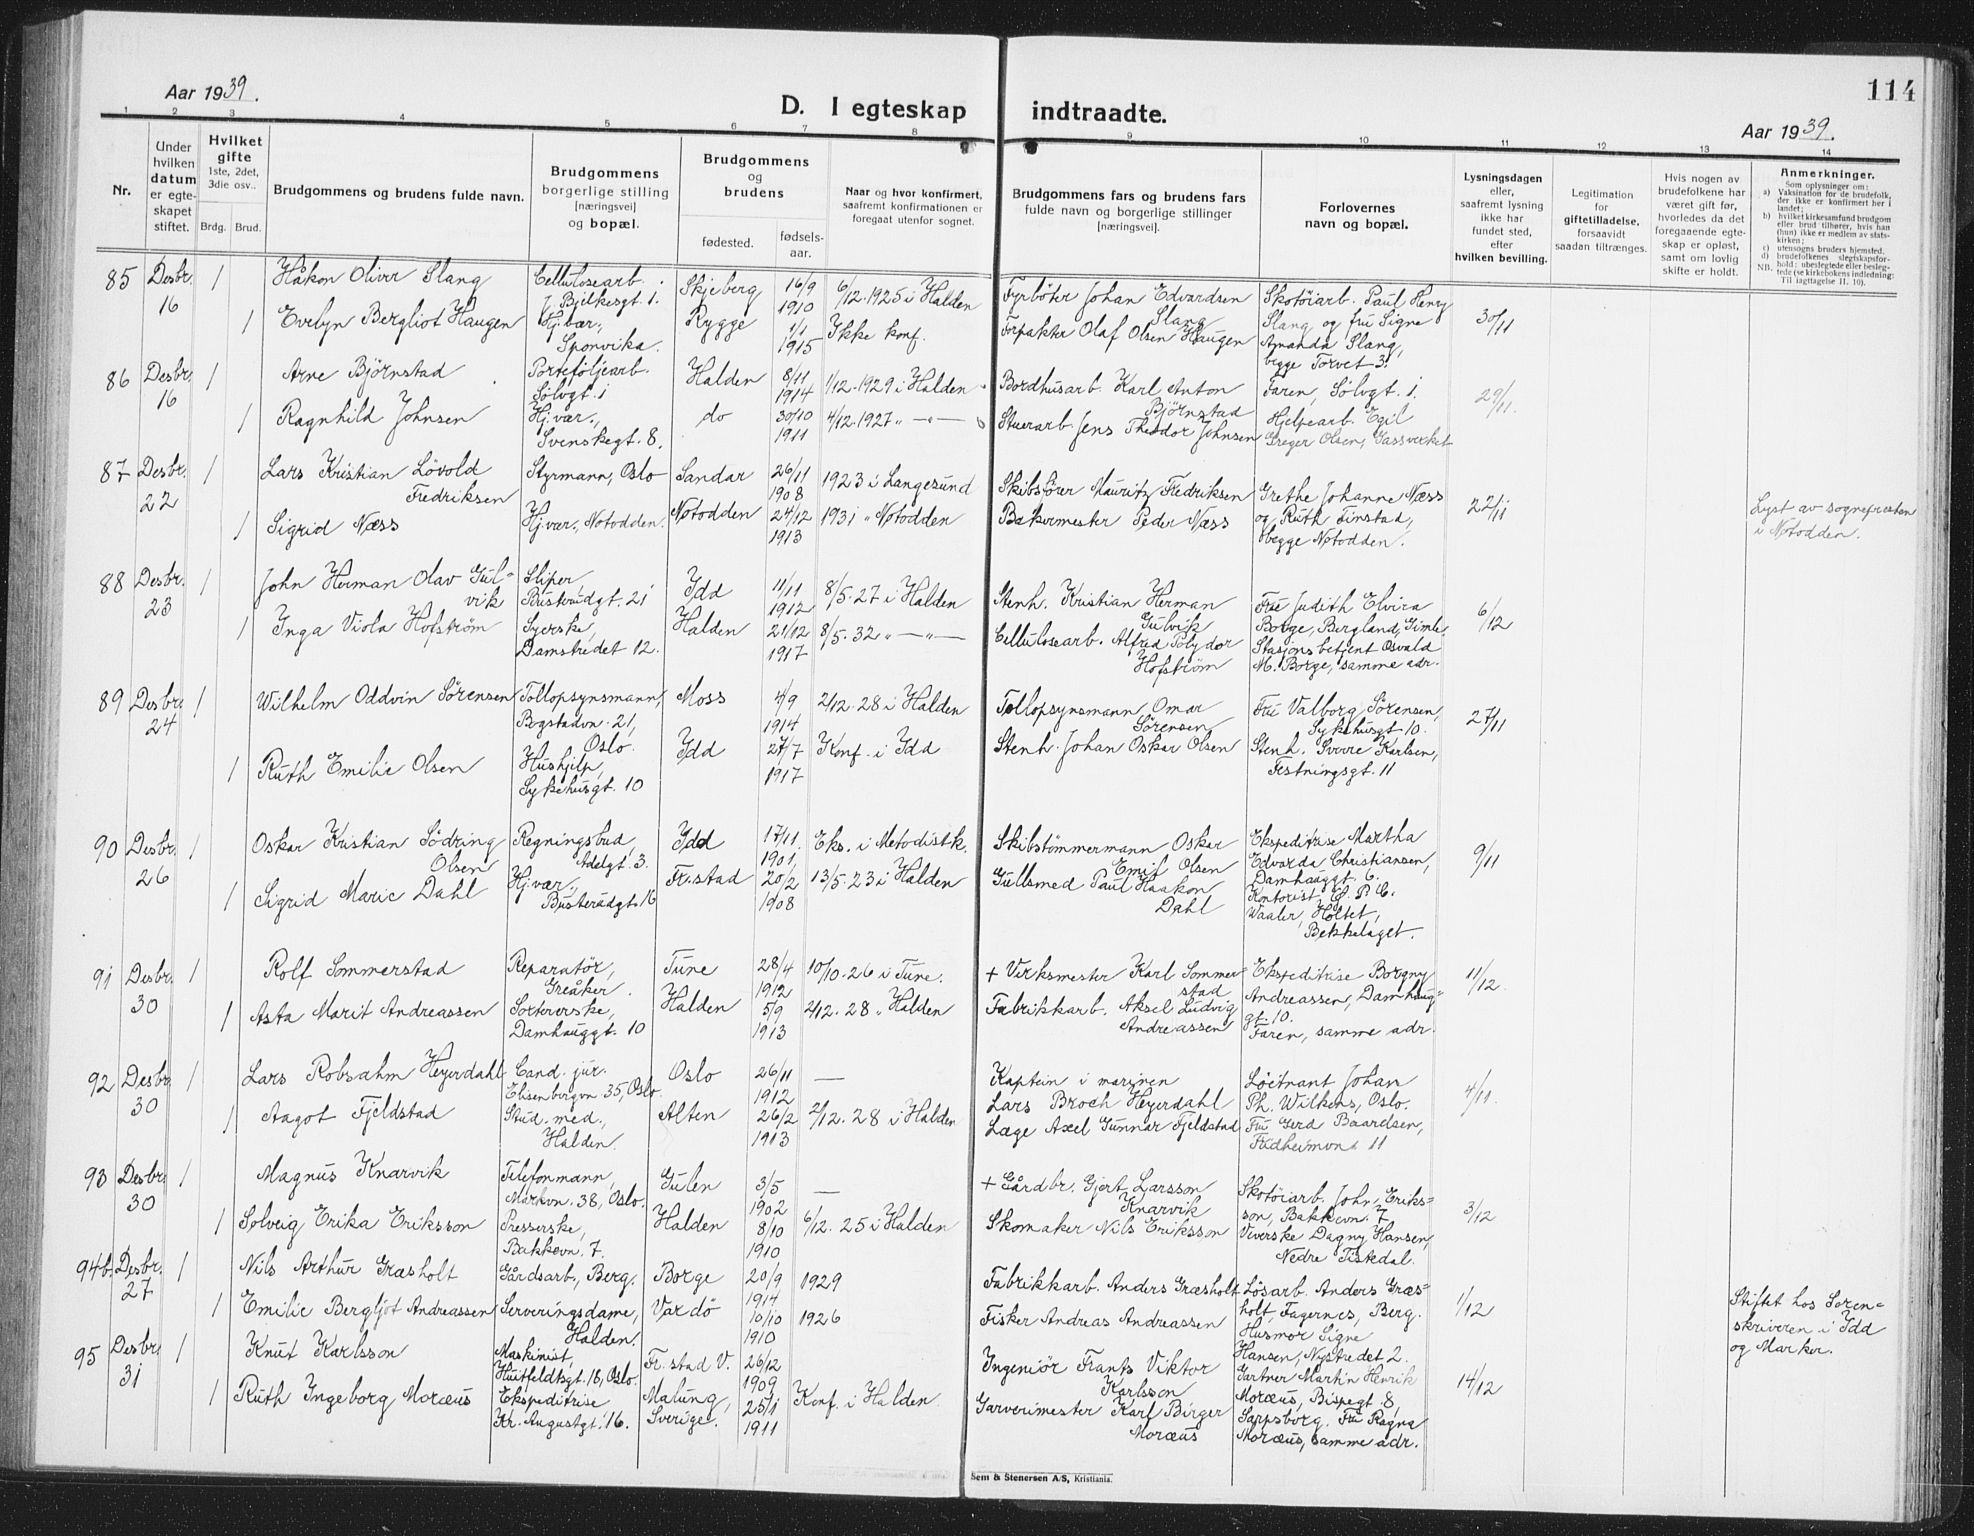 Aar 1939.
D. I egteskap indtraadte.
114
Aar 1939.
1 2 3 4 5 6 7 8 9 10 11 12 13 14
Nr.
Under hvilken datum er egteskapet stiftet.
Hvilket gifte 1ste, 2det, 3die osv..
Brdg. Brud.
Brudgommens og brudens fulde navn.
Brudgommens borgerlige stilling [næringsvei] og bopæl.
Brudgommens og brudens
fødested. fødsels-aar.
Naar og hvor konfirmert, saafremt konfirmationen er foregaat utenfor sognet.
Brudgommens fars og brudens fars fulde navn og borgerlige stillinger [næringsvei].
Forlovernes navn og bopæl.
Lysningsdagen eller, saafremt lysning ikke har fundet sted, efter hvilken bevilling.
Legitimation for giftetilladelse, forsaavidt saadan tiltrænges.
Hvis nogen av brudefolkene har været gift før, hvorledes da det foregaaende egteskap er opløst, samt om lovlig skifte er holdt.
Anmerkninger.
Som oplysninger om:
a) Vaksination før de brudefolk, der ikke er konfirmert her i landet;
b) hvilket kirkesamfund brudgom eller brud tilhører, hvis han (hun) ikke er medlem av statskirken;
c) utensogns bruders hjemsted.
d) brudefolkenes slegtskapsforhold: ubeslegtede eller beslegtede (se kirkebokens indledning:
NB. Til iagttagelse II. 10).
85 Desbr. 16 1 Håkon Oliver Slang Cellulosearb. J. Bjelkesgt. 1. Skjeberg 16/9 1910 6/12.1925 i Halden Fyrbøter Johan Edvardsen Slang Skotøiarb. Paul Henry Slang og fru Signe Amanda Slang, begge Torvet 3. 30/11
1 Evelyn Bergliot Haugen Hj.vær., Sponvika. Rygge 1/1 1915 Ikke konf. Forpakter Olaf Olsen Haugen
86 Desbr. 16 1 Arne Bjørnstad Porteføljearb. Sølvgt. 1 Halden 8/11 1914 1/12.1929 i Halden Bordhusarb. Karl Anton Bjørnstad Faren, Sølvgt. 1. Hjelpearb. Egil Greger Olsen, Gassverket 29/11.
1 Ragnhild Johnsen Hj.vær., Svenskegt. 8. do 30/10 1911 4/12.1927 " — " — Stuerarb. Jens Theodor Johnsen
87 Desbr. 22 1 Lars Kristian Lövold Fredriksen Styrmann, Oslo Sandar 26/11 1908 1923 i Langesund Skibsfører Mauritz Fredriksen Grethe Johanne Næss og Ruth Tinstad, begge Notodden. 22/11 Lyst av sognepresten i Notodden.
1 Sigrid Næss Hj.vær., Notodden. Notodden 24/12 1913 1931 " Notodden Bakermester Peder Næss
88 Desbr. 23 1 John Herman Olav Gulvik Sliper, Busterudgt. 21 Idd 11/11 1912 8/5.27 i Halden Stenh. Kristian Herman Gulvik Fru Judith Elvira Borge, Bergland, Gimle. Stasjonsbetjent Osvald M. Borge, samme adr. 6/12
1 Inga Viola Hofstrøm Syerske, Damstredet 12. Halden 21/12 1917 8/5.32 " — " — Cellulosearb. Alfred Polydor Hofstrøm
89 Desbr. 24 1 Wilhelm Oddvin Sørensen Tollopsynsmann, Bogstadvn. 21, Oslo. Moss 4/9 1914 2/12.28 i Halden Tollopsynsmann Omar Sørensen Fru Valborg Sørensen, Sykehusgt. 10. Stenh. Sverre Karlsen, Festningsgt. 11 27/11
1 Ruth Emilie Olsen Hushjelp, Sykehusgt. 10 Idd 27/7 1917 Konf. i Idd Stenh. Johan Oskar Olsen
90 Desbr. 26 1 Oskar Kristian Södring Olsen Regningsbud, Adelgt. 3. Idd 17/11. 1901, Eks. i Metodistk. Skibstømmermann Oskar Emil Olsen Ekspeditrise Martha Edvarda Christiansen, Damhauggt. 6. Kontorist P. C. Waaler, Holtet, Bekkelaget. 9/11
1 Sigrid Marie Dahl Hj.vær., Busterudgt. 16 Fr.stad 20/2 1908 13/5.23 i Halden Gullsmed Paul Haakon Dahl
91 Desbr. 30 1 Rolf Sommerstad Reparatør, Greåker. Tune 28/4 1912 10/10.26 i Tune. + Verksmester Karl Sommerstad Ekspeditrise Borgny Andreassen, Damhauggt. 10. Faren, samme adr. 11/12
1 Asta Marit Andreassen Sorterерske, Damhauggt. 10 Halden 5/9 1913 2/12.28 " Halden Fabrikkarb. Aksel Ludvig Andreassen
92 Desbr. 30 1 Lars Robsahm Heyerdahl Cand. jur. Elisenbergvn 35, Oslo. Oslo 26/11 1912 — Kaptein i marinen Lars Broch Heyerdahl Løitnant Johan Ph. Wilkens, Oslo. Fru Gerd Baardsen, Fredheimvn. 11 4/11.
1 Aagot Fjeldstad Stud. med., Halden. Alten 26/2 1913 2/12.28 i Halden Læge Axel Gunnar Fjeldstad
93 Desbr. 30 1 Magnus Knarvik Telefonmann, Markvn. 38, Oslo. Gulen 3/5 1902 — + Gårdbr. Gjert Larsson Knarvik Skotøiarb. John Eriksson, Bakkevn. 7 Veverske Dagny Hansen, Nedre Tistedal. 3/12
1 Solveig Erika Eriksson Presserske, Bakkevn. 7. Halden 8/10 1910 6/12.25 i Halden Skomaker Nils Eriksson
94b. Desbr. 27 1 Nils Arthur Græsholt Gårdsarb., Berg. Borge 20/9 1914 1929 Fabrikkarb. Anders Græsholt Løsarb. Anders Græsholt, Fagernes, Berg. Husmor Signe Hansen, Nystredet 2. 1/12 Stiftet hos Sorenskriveren i Idd og Marker.
1 Emilie Bergljot Andreassen Serveringsdame, Halden. Vardö 10/10 1910 1926 Fisker Andreas Andreassen
95 Desbr. 31 1 Knut Karlsson Maskinist, Huitfeldtsgt. 18, Oslo. Fr.stad V. 26/12 1909 Ingeniør Frants Viktor Karlsson Gartner Martin Henrik Moræus, Bispegt. 8, Sarpsborg. Fru Ragna Moræus, samme adr. 14/12
1 Ruth Ingeborg Moræus Ekspeditrise Kr. Augustgt. 16. Malung, Sverige. 25/1 1911 Konf. i Halden. Garverimester Karl Birger Moræus
Sem & Stenersen A/S, Kristiania.